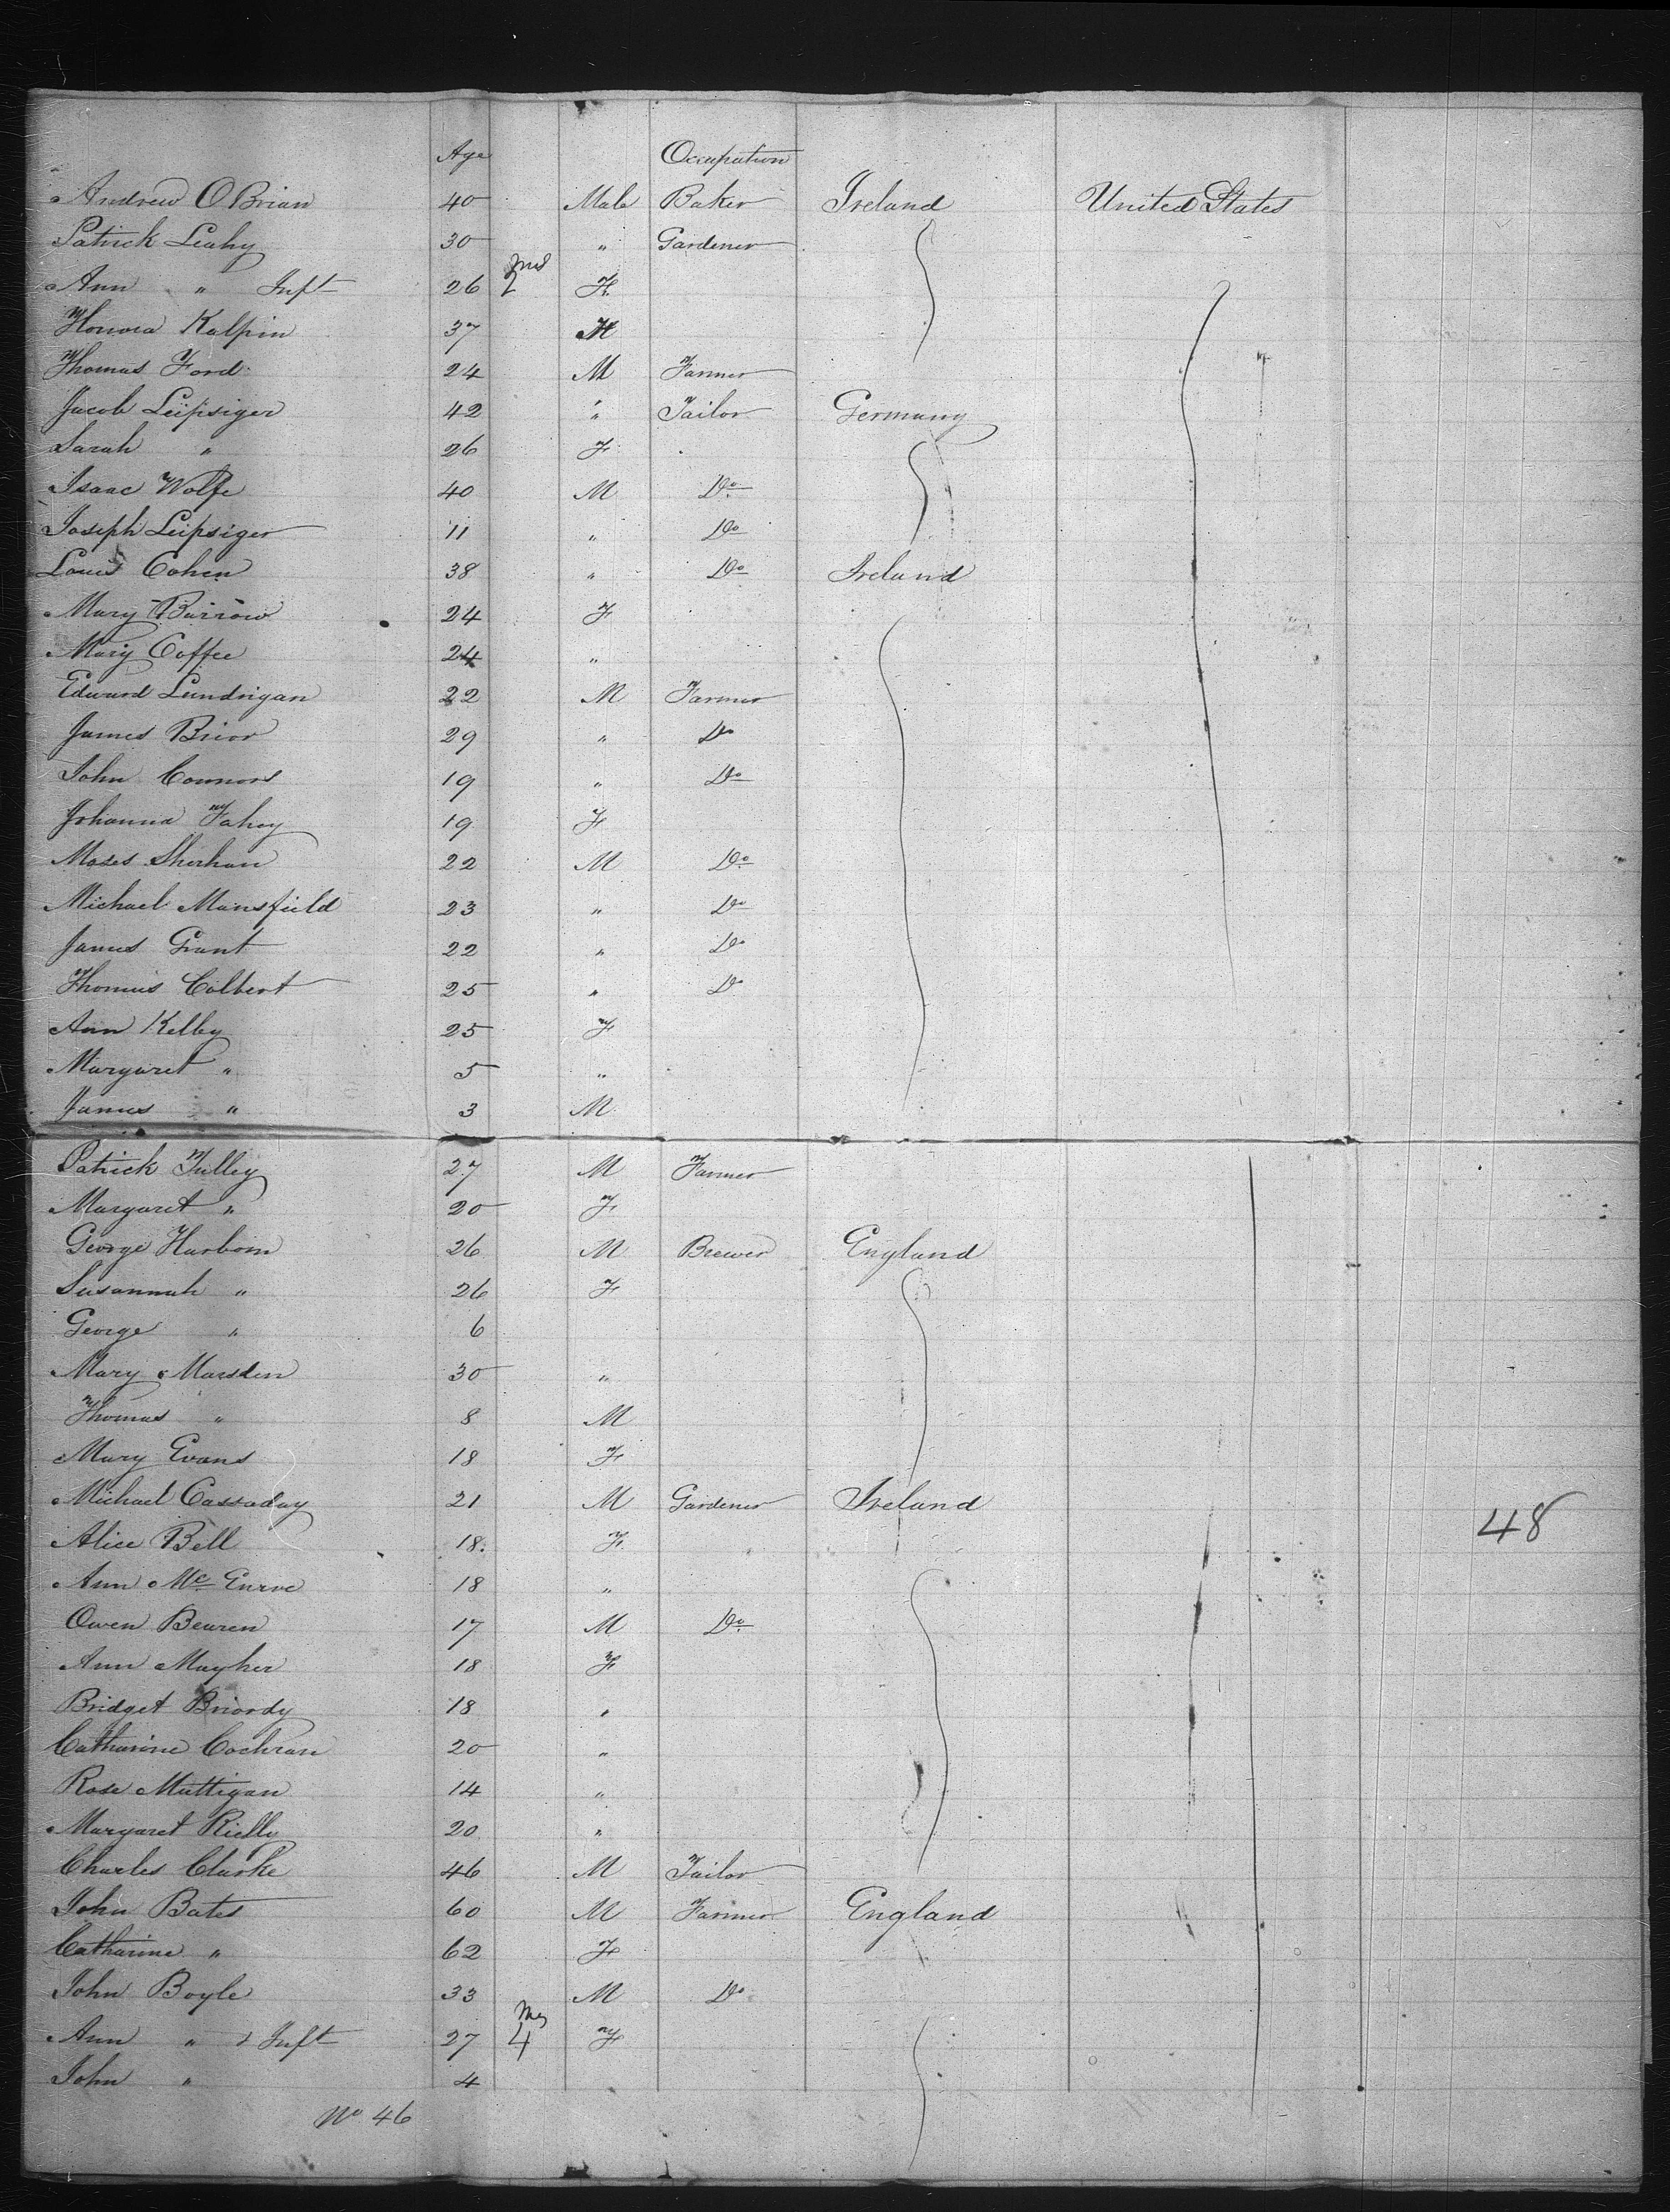 Age Occupation
Andrew O Brian 40 Male Baker Ireland United States
Patrick Leahy 30 " Gardener
Ann " Inft 26 2 mos F
Honora Kalpin 37 F
Thomas Ford 24 M Farmer
Jacob Leipsiger 42 " Tailor Germany
Sarah " 26 F
Isaac Wolfe 40 M Do
Joseph Leipsiger 11 " Do
Louis Cohen 38 " Do Ireland
Mary Barrow 24 F
Mary Coffee 24 "
Edward Lundrigan 22 M Farmer
James Brior 29 " Do
John Connors 19 " Do
Johanna Fahey 19 F
Moses Sherhan 22 M Do
Michael Mansfield 23 " Do
James Grant 22 " Do
Thomas Colbert 25 " Do
Ann Kelby 25 F
Margaret " 5 "
James " 3 M
Patrick Tulley 27 M Farmer
Margaret " 20 F
George Harborn 26 M Brewer England
Susannah " 26 F
George " 6
Mary Marsden 30 "
Thomas " 8 M
Mary Evans 18 F
Michael Cassaday 21 M Gardener Ireland
Alice Bell 18. F
48
Ann Mc 18 "
Owen Bearen 17 M Do
Ann Mayher 18 F
Bridget Briordy 18 "
Catharine Cochran 20 "
Rose Muttigan 14 "
Margaret Rielly 20 "
Charles Clarke 46 M Tailor
John Bates 60 M Farmer England
Catharine " 62 F
John Boyle 33 M Do
Ann " & Inft 27 4 Mos F
John " 4
No 46